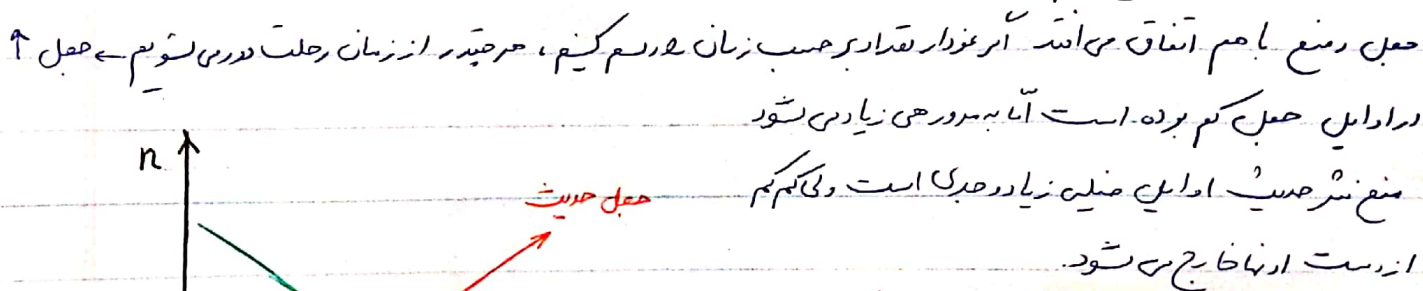 جعل و منع با هم اتفاق می افتند اگر نمودار تعداد بر حسب زمان را رسم کنیم، هر چقدر از زمان رحلت دور می شویم ← جعل ↑
در اوایل جعل کم بوده است امّا به مرور هی زیاد می شود
n
منع نشر حدیث اوایل خیلی زیاد و جدی است ولی کم کم
جعل حدیث
از دست اونها خارج می شود.